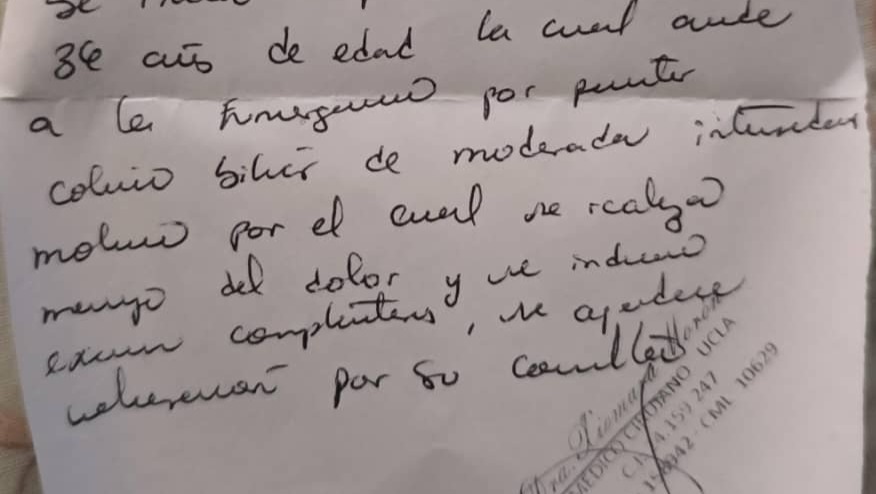 se
36 años de edad la cual acude
a la Emergencia por presentar
colico biliar de moderada intensidad
motivo por el cual se realiza
manejo del dolor y se indican
examen complementarios, se agradece
valoración por su consulta
Dra.
MEDICO CIRUJANO UCLA
159 247
CML 10629